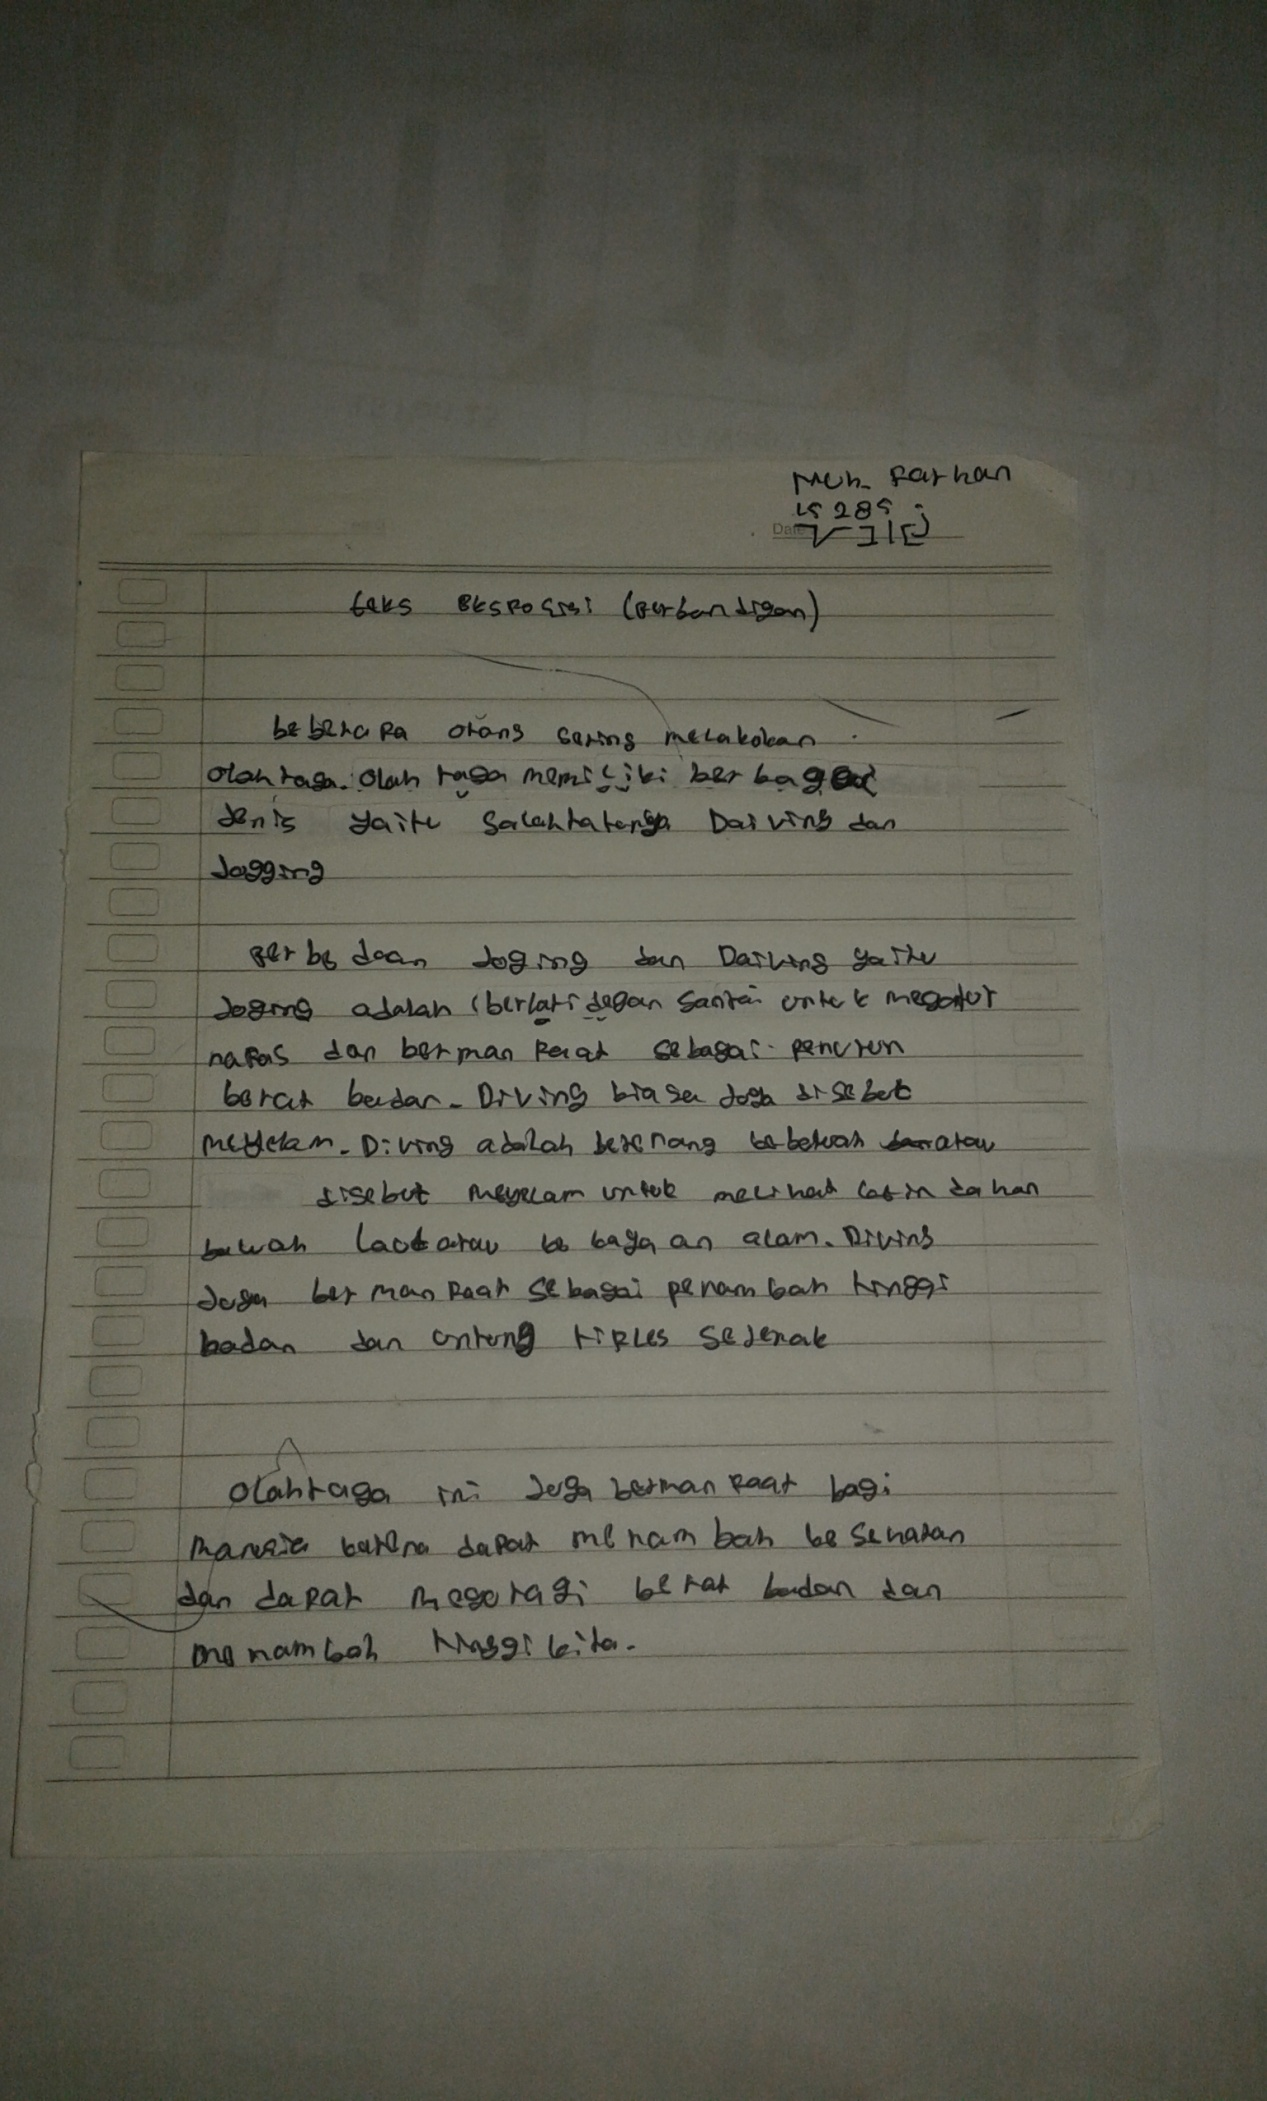 Muh. Farhan
15285
Date
teks eksposisi (perbandigan)
beberapa orang sering melakokan
olahraga. Olah raga memiliki berbagai
Jenis yaitu Salahtatunya Daiving dan
Jogging
perbedaan Joging dan Daiving yaitu
Joging adalah (berlari degan santai untuk megatur
nafas dan bermanfaat sebagai penurun
berat badan. Diving biasa Juga disebut
meyelam. Diving adalah berenang kebewah atau
disebut meyelam untuk melihat
bawah laut atau alam. Diving
Juga bermanfaat sebagai penambah tinggi
badan dan untung rifles sejenak
Olahraga ini Juga bermanfaat bagi
manusia karena dapat menambah kesehatan
dan dapat megoragi berat badan dan
menambah tinggi kita.